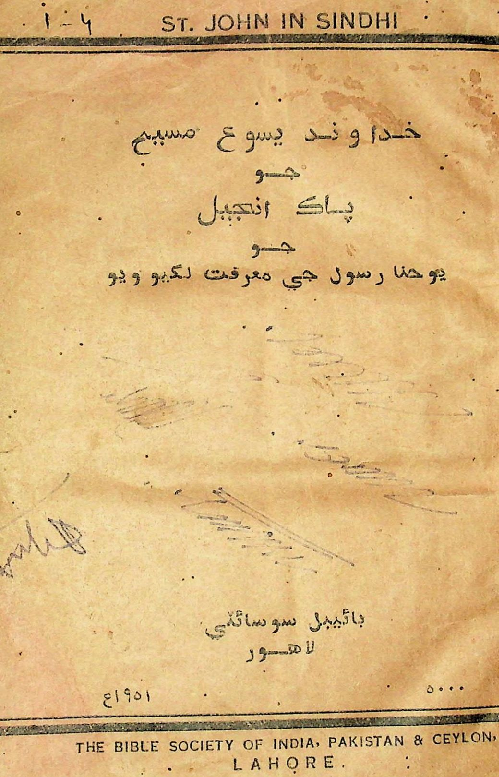 ۱-۴ ST. JOHN IN SINDHI
خداوند يسوع مسيح
جو
پاڪ انجيل
جو
يوحنا رسول جي معرفت لکيو ويو
بائيبل سوسائٽي
لاهور
۱۹۵۱ع ۵۰۰۰
THE BIBLE SOCIETY OF INDIA, PAKISTAN & CEYLON,
LAHORE.